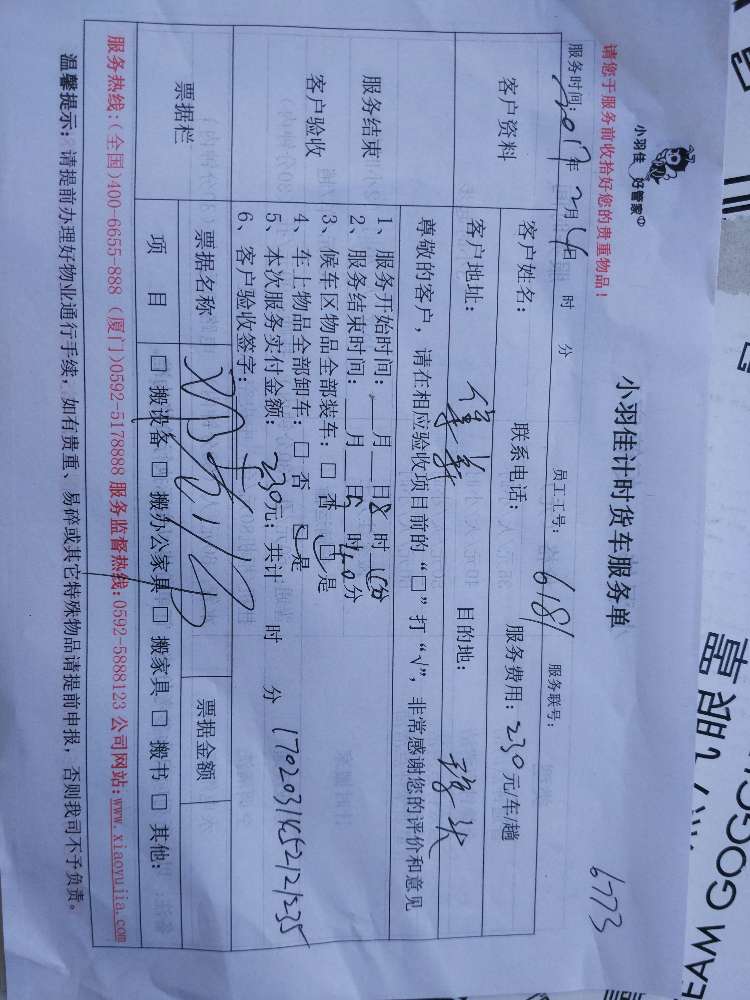 小羽佳 好管家
6773
请您于服务前收拾好您的贵重物品！
小羽佳计时货车服务单
服务时间：2017年2月4日 时 分 员工工号：6181 服务联号：
客户资料
客户姓名： 联系电话： 服务费用：230元/车/趟
客户地址： 目的地：
服务结束
客户验收
尊敬的客户，请在相应验收项目前的“□”打“√”，非常感谢您的评价和意见
1、服务开始时间：___月___日8时 分
2、服务结束时间：___月___日 时40分
3、候车区物品全部装车：□ 否 □ 是
4、车上物品全部卸车：□ 否 □ 是
5、本次服务实付金额：230元；共计 时 分
6、客户验收签字：
票据栏
票据名称 票据金额
项 目
□ 搬设备 □ 搬办公家具 □ 搬家具 □ 搬书 □ 其他：
服务热线：(全国)400-6655-888 (厦门)0592-5178888 服务监督热线：0592-5888123 公司网站：www.xiaoyujia.com
温馨提示：请提前办理好物业通行手续，如有贵重、易碎或其它特殊物品请提前申报，否则我司不予负责。